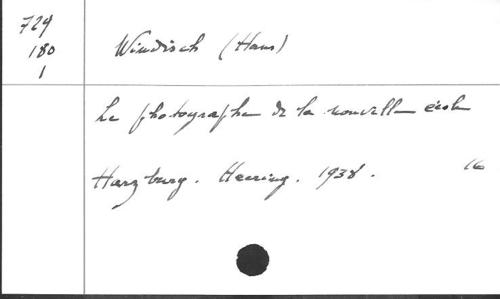 724
180
1
Windisch (Hans)
Le photographe de la nouvelle école
Harzburg. Heering. 1938. 16